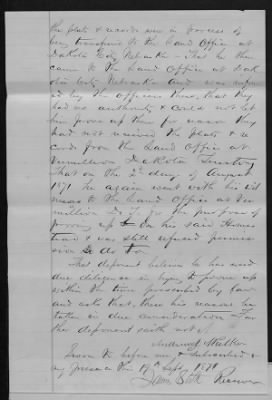 the plats & records were in process of
being transfered to the Land Office at
Dakota City Nebraska – That he then
came to the Land Office at Dak
ota City Nebraska and was inform
ed by the Officers there, that they
had no authority & could not let
him prove up then for reason they
had not received the plats & re
cords from the Land Office at
Vermillion Dakota Territory
That on the 2d day of August
1871 he again went with his wit
nesses to the Land Office at Ver
million D.T. for the purpose of
proving up on his said Homes
tead & was still refused permis
sion to do so
That deponent believes he has used
due diligence in trying to prove up
within the time prescribed by law
and asks that these his reasons be
taken in due consideration – Fur
ther deponent saith not
Sworn to before me & subscribed in
my presence this 19th Sept. 1871